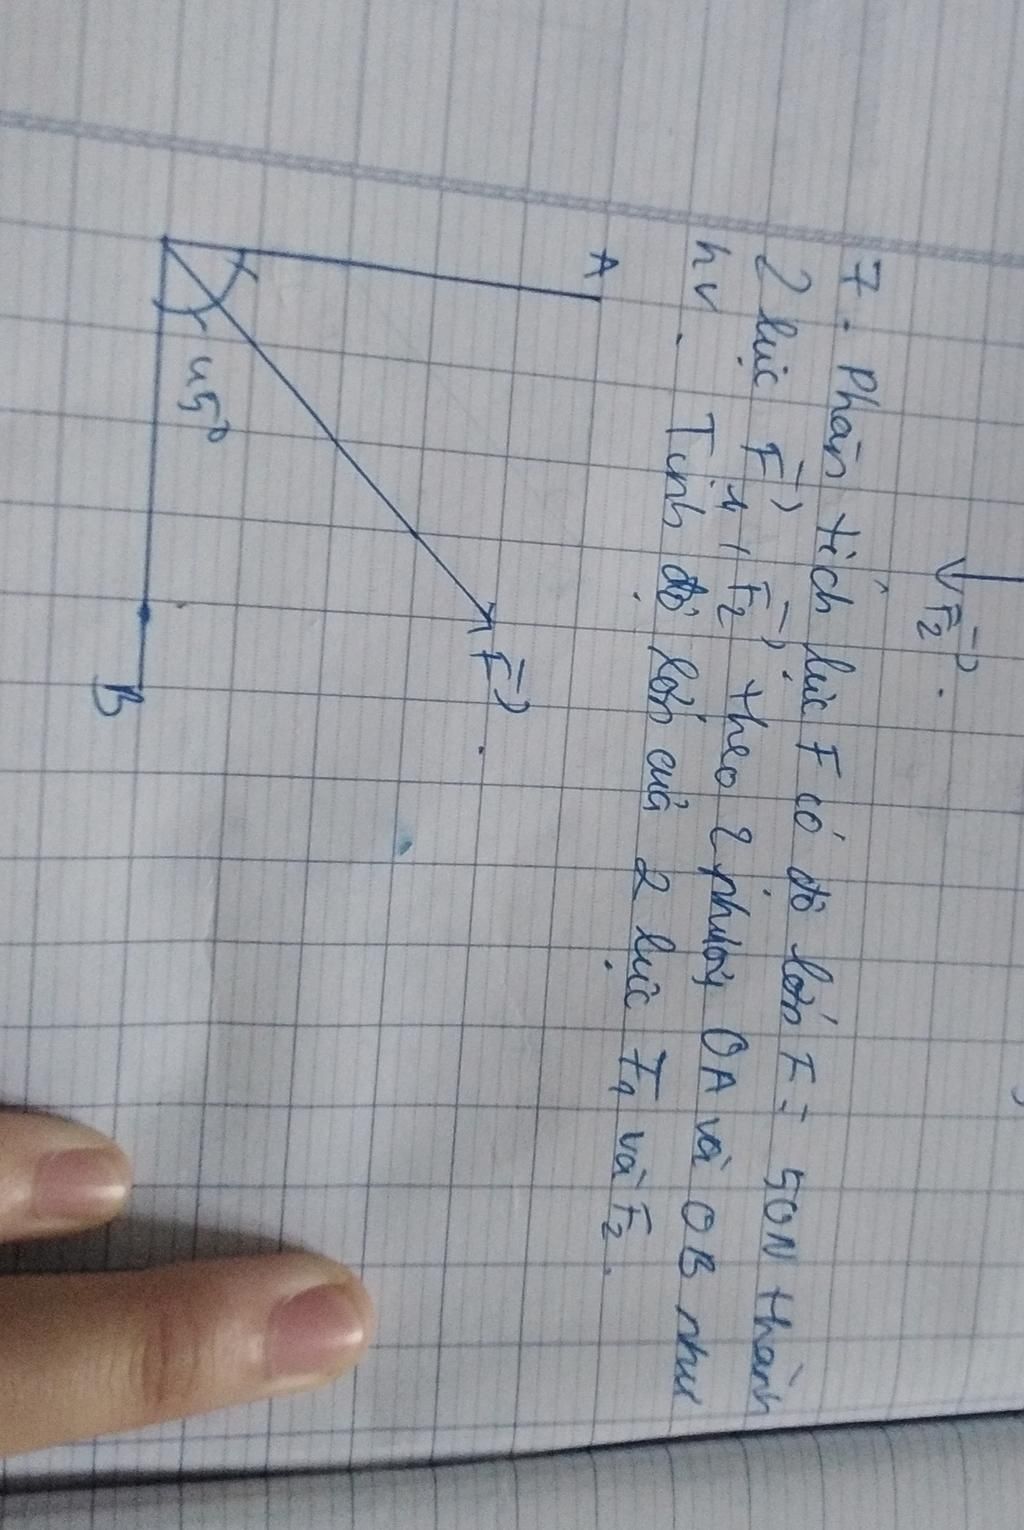 F₂
7. Phân tích lực F có độ lớn F = 50N thành
2 lực F₁, F₂ theo 2 phương OA và OB như
hv. Tính độ lớn của 2 lực F₁ và F₂.
A
F
45°
B